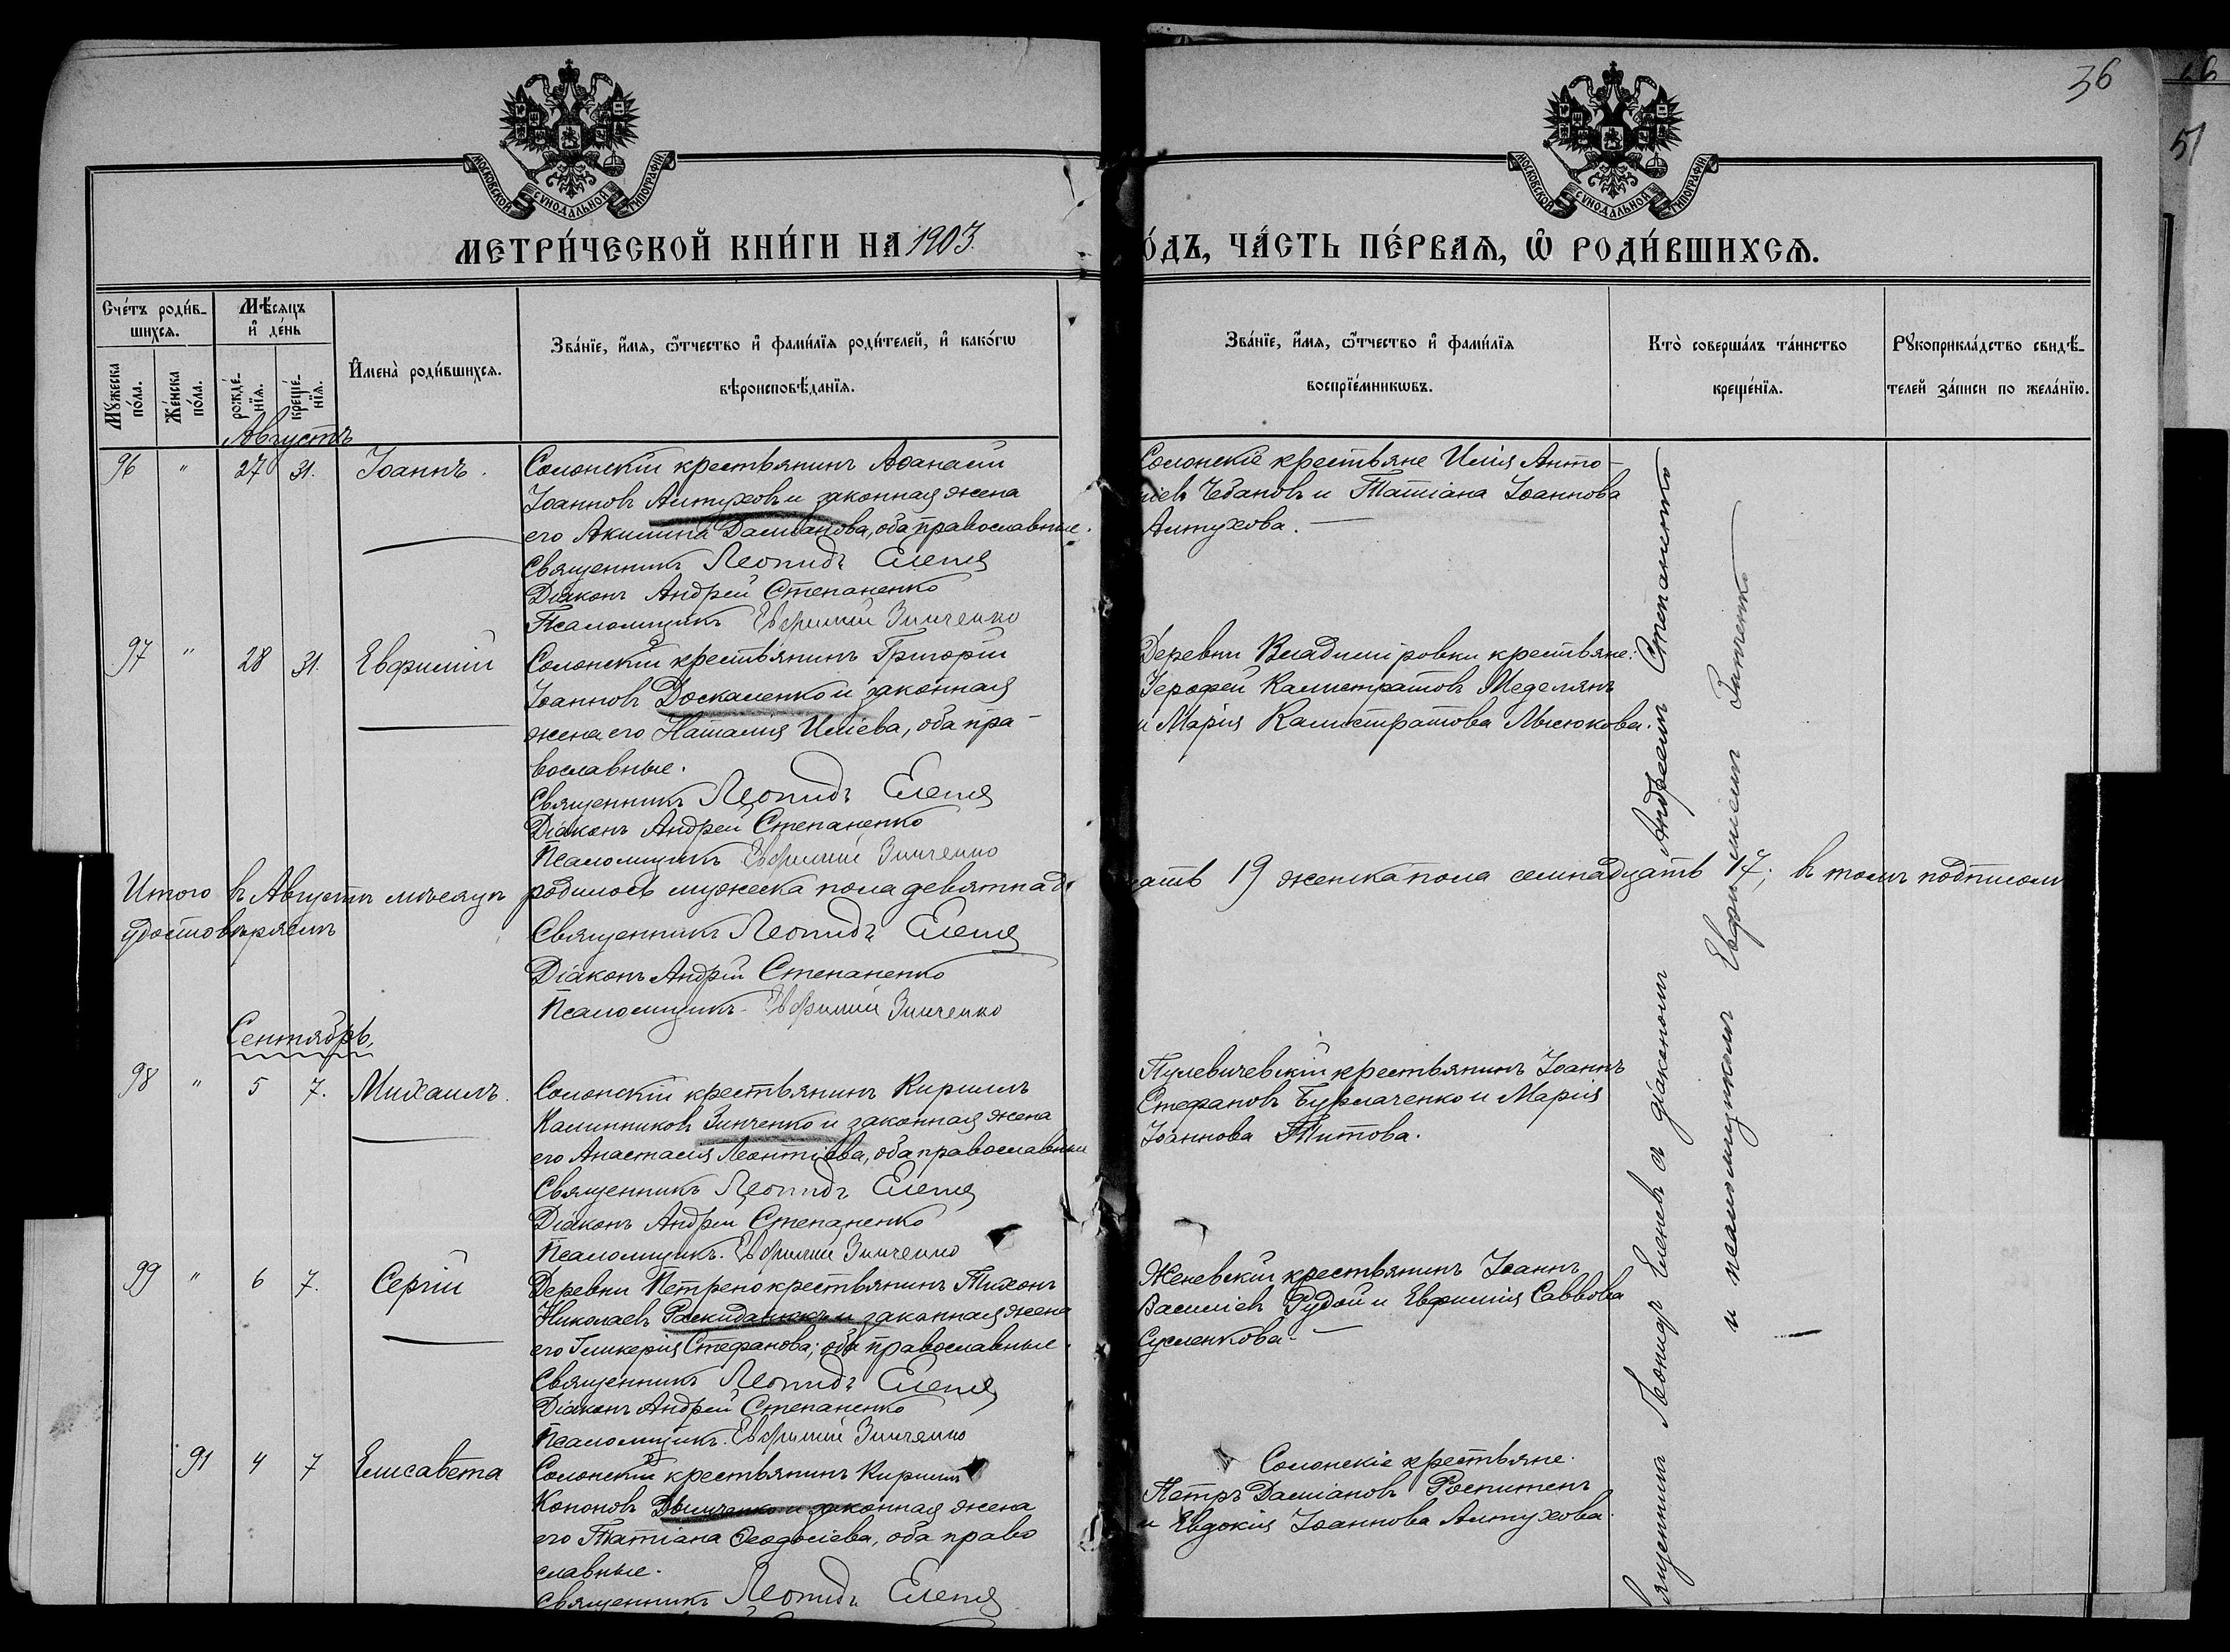 36
26
51
МОСКОВСКОЙ СѴНОДАЛЬНОЙ ТИПОГРАФІИ
МОСКОВСКОЙ СѴНОДАЛЬНОЙ ТИПОГРАФІИ
МЕТРИ́ЧЕСКОЙ КНИ́ГИ НА 1903
О́ДЪ, ЧА́СТЬ ПЕ́РВАЯ, Ѽ РОДИ́ВШИХСЯ.
Сче́тъ роди́в-
шихся.
Мѣ́сяцъ
и҆ де́нь
Мꙋ́жеска
по́ла.
Же́нска
по́ла.
рожде́-
нїя.
креще́-
нїя.
И҆мена̀ роди́вшихся.
Зва́нїе, и҆́мя, ѻ҆́тчество и҆ фами́лїя роди́телей, и҆ како́гѡ
вѣроисповѣ́данїя.
Зва́нїе, и҆́мя, ѻ҆́тчество и҆ фами́лїя
воспрїе́мникѡвъ.
Кто̀ соверша́лъ та́инство
креще́нїя.
Рꙋкоприкла́дство свидѣ́-
телей за́писи по жела́нїю.
Августъ
96 " 27 31. Іоаннъ.
Солонскій крестьянинъ Аѳанасій
Іоанновъ Алтуховъ и законная жена
его Акилина Даміанова, оба православные.
Священникъ Леонидъ Еленев
Діаконъ Андрей Степаненко
Псаломщикъ Евфимій Зинченко
Солонскіе крестьяне Илія Анто-
ніевъ Чебановъ и Татіана Іоаннова
Алтухова.
97 " 28 31. Евфимій
Солонскій крестьянинъ Григорій
Іоанновъ Доскаленко и законная
жена его Наталія Иліева, оба пра-
вославные.
Священникъ Леонидъ Еленев
Діаконъ Андрей Степаненко
Псаломщикъ Евфимій Зинченко
Деревни Владиміровки крестьяне:
Іерофей Калистратовъ Меделянъ
и Марія Калистратова Мысюкова.
Итого въ Августѣ мѣсяцѣ родилось мужеска пола девятнад
цать 19 женска пола семнадцать 17; въ томъ подписомъ
удостовѣряемъ
Священникъ Леонидъ Еленев
Діаконъ Андрей Степаненко
Псаломщикъ Евфимій Зинченко
Сентябрь.
98 " 5 7. Михаилъ.
Солонскій крестьянинъ Кириллъ
Калинниковъ Зинченко и законная жена
его Анастасія Леонтіева, оба православные
Священникъ Леонидъ Еленев
Діаконъ Андрей Степаненко
Псаломщикъ. Евфимій Зинченко
Пулевичевскій крестьянинъ Іоаннъ
Стефановъ Бурлаченко и Марія
Іоаннова Титова.
99 " 6 7. Сергій
Деревни Петрено крестьянинъ Тихонъ
Николаевъ и законная жена
его Гликерія Стефанова; оба православные.
Священникъ Леонидъ Еленев
Діаконъ Андрей Степаненко
Псаломщикъ. Евфимій Зинченко
Женевскій крестьянинъ Іоаннъ
Василіевъ Рудой и Евфимія Саввова
Сусленкова.
91 4 7 Елисавета
Солонскій крестьянинъ Кириллъ
Кононовъ и законная жена
его Татіана Ѳеодосіева, оба право
славные.
Священникъ Леонидъ Еленев
Солонскіе крестьяне.
Петръ Даміановъ Роспитенъ
и Евдокія Іоаннова Алтухова.
Священникъ Леонидъ Еленевъ съ діакономъ Андреемъ Степаненко
и псаломщикомъ Евфиміемъ Зинченко